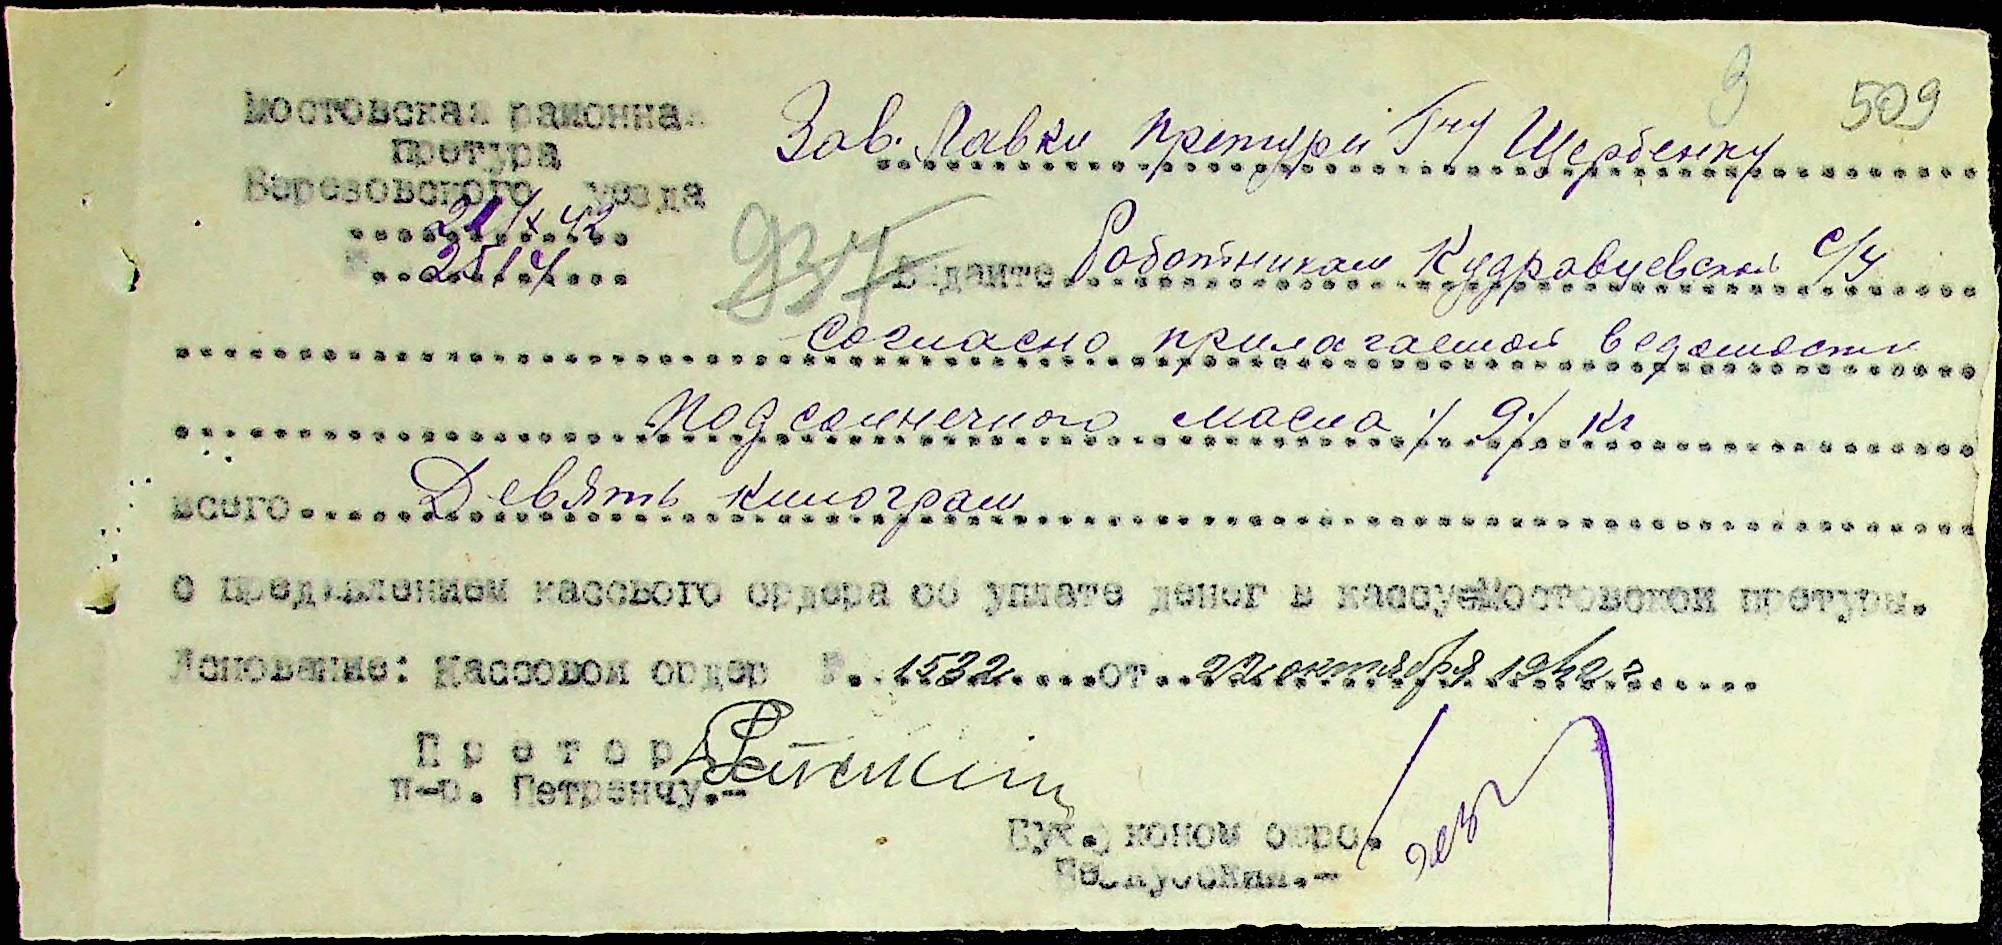 3 509
Мостовская районная
Претура
Березовского уезда
21/X 42
2514
Зав. Лавки претуры Г-ну Щербенку
937
Выдайте Работникам Кудрявцевской с/у
согласно прилагаемой ведомости
Подсолнечного масла /9/ кг
всего Девять килограм
с предявлением кассвого ордера об уплате денег в кассу Мостовской претуры.
Основание: Кассовой ордер № 1532 от 22 октября 1942 г
Претор
П-р. Петренчу.-
Бух.